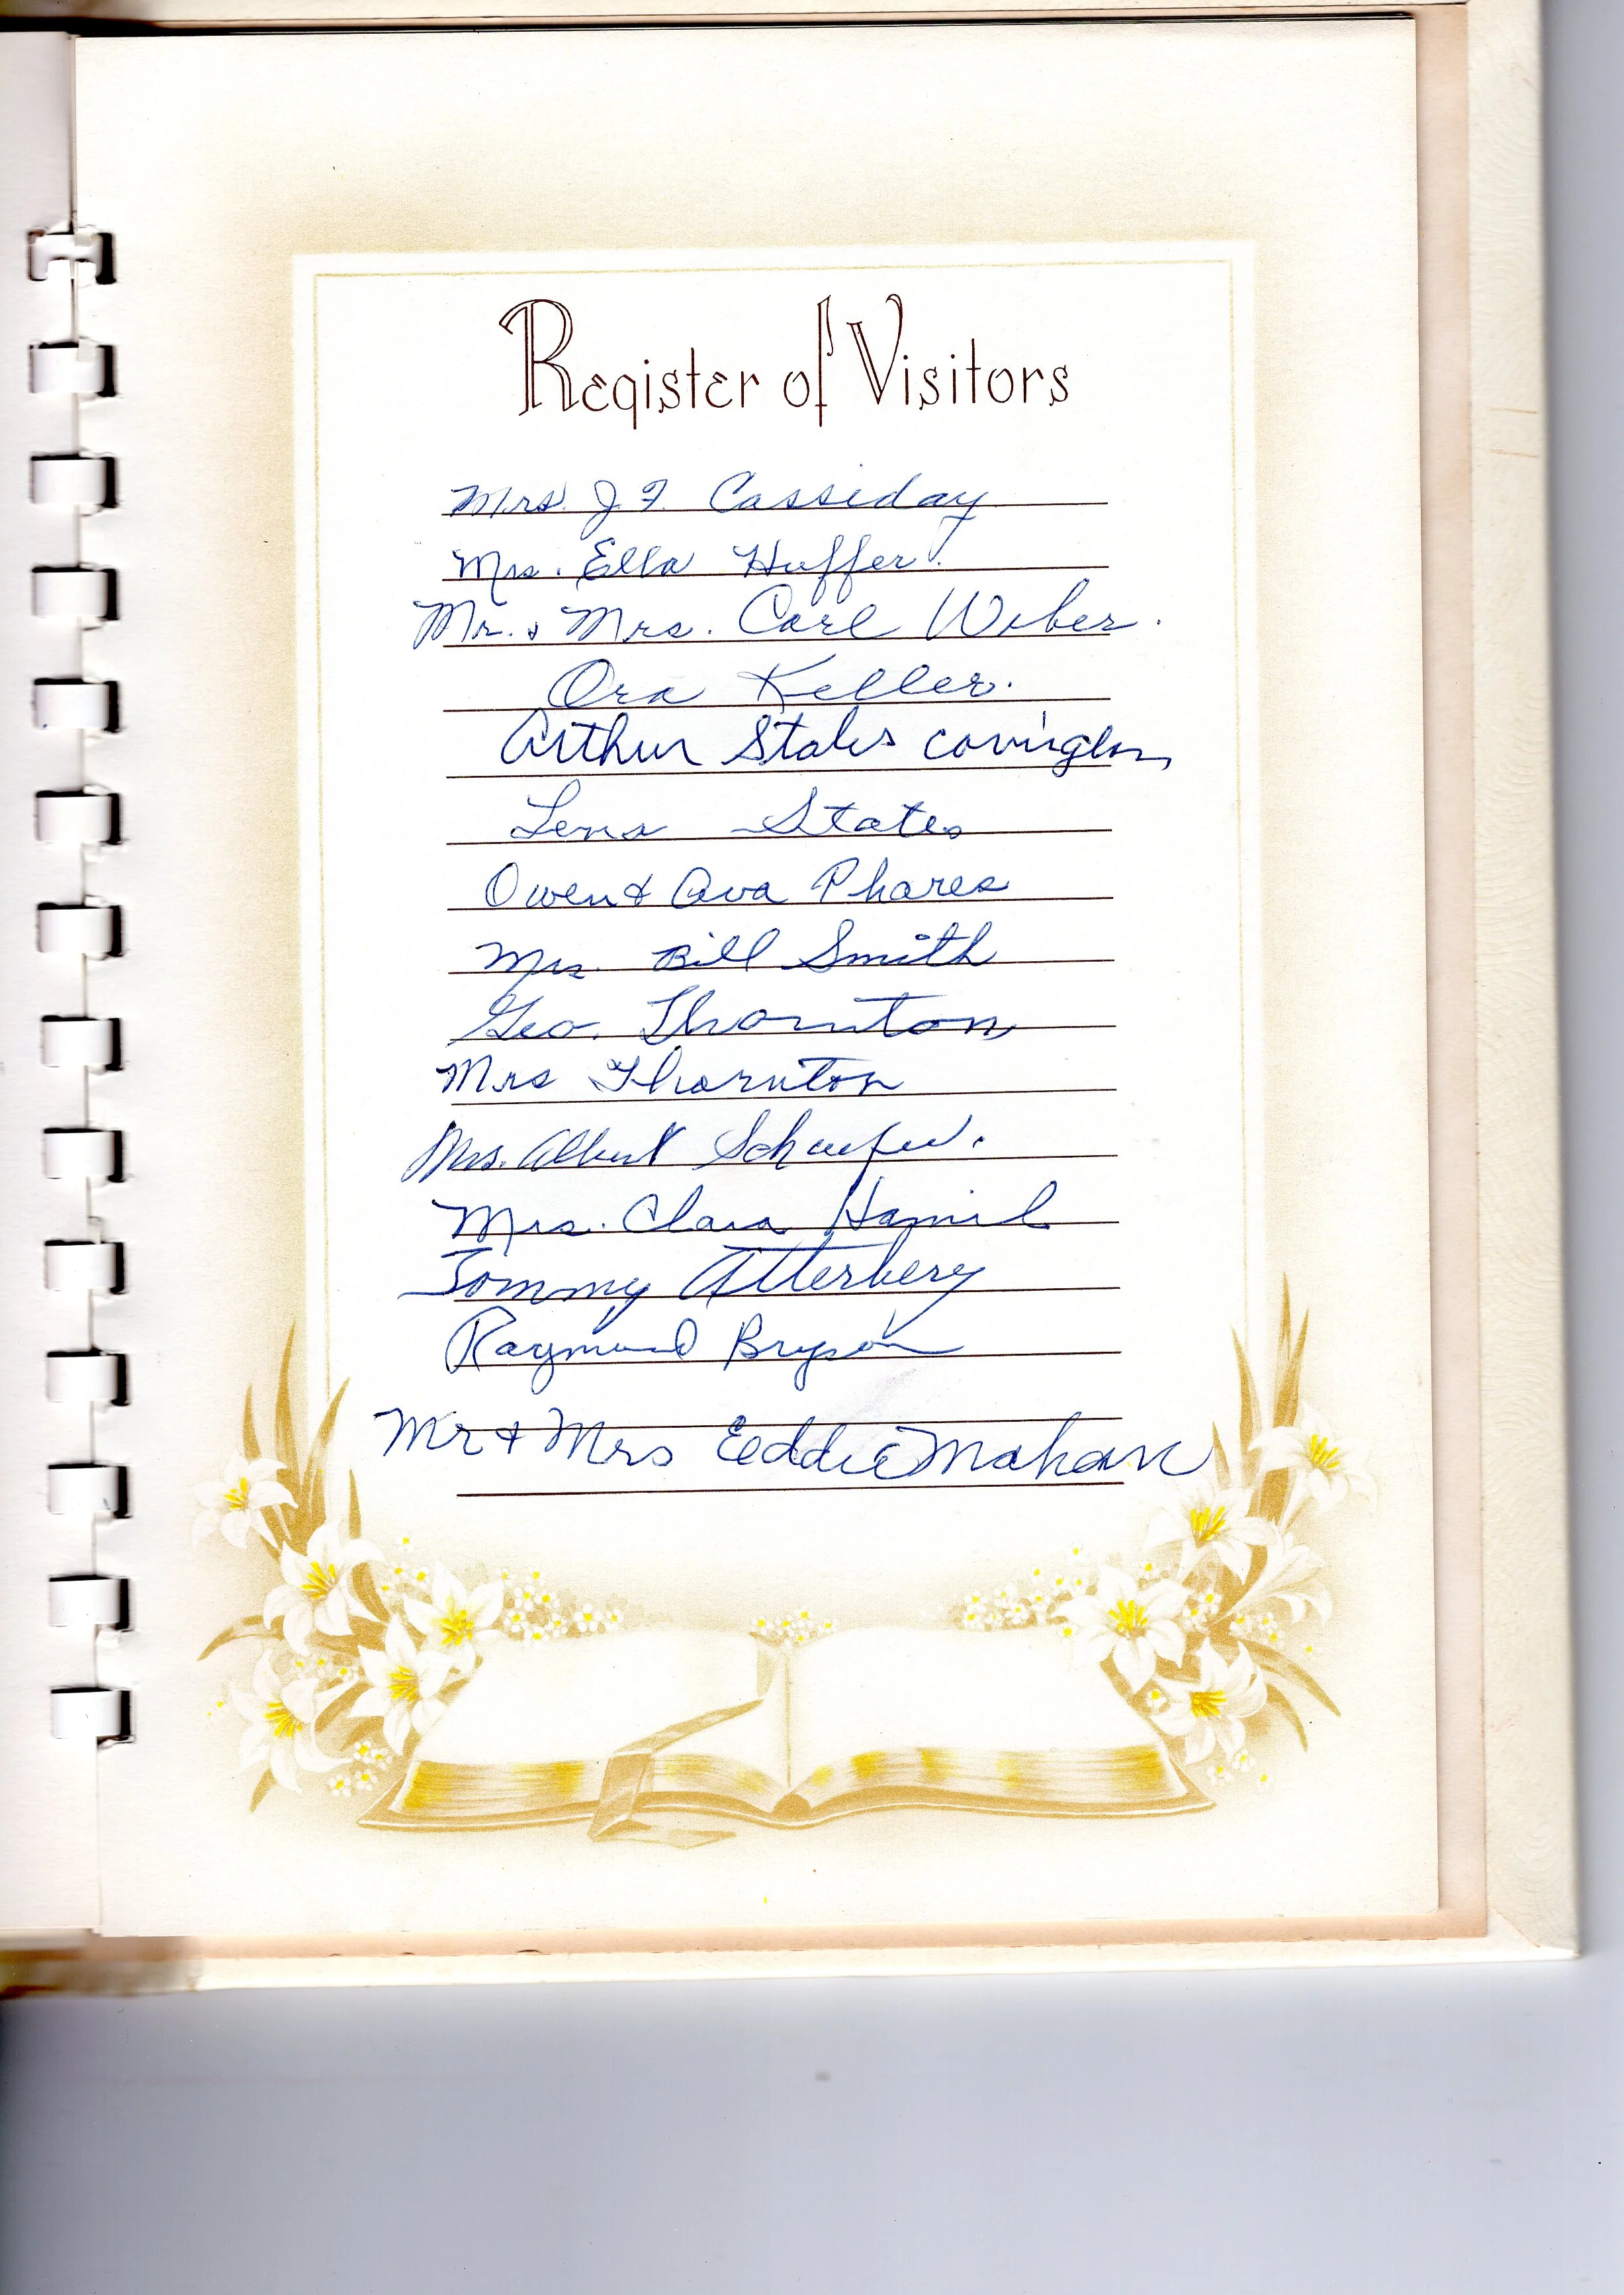 Register of Visitors
Mrs. J. F. Cassiday
Mrs. Ella Huffer.
Mr. & Mrs. Carl Weber.
Ora Keller.
Arthur States Covington
Lena States
Owen & Ava Phares
Mrs. Bill Smith
Geo. Thornton
Mrs Thornton
Mrs. Albert Schaefer.
Mrs. Clara Hamil
Tommy Atterbery
Raymond Bryson
Mr & Mrs Eddie Mahan